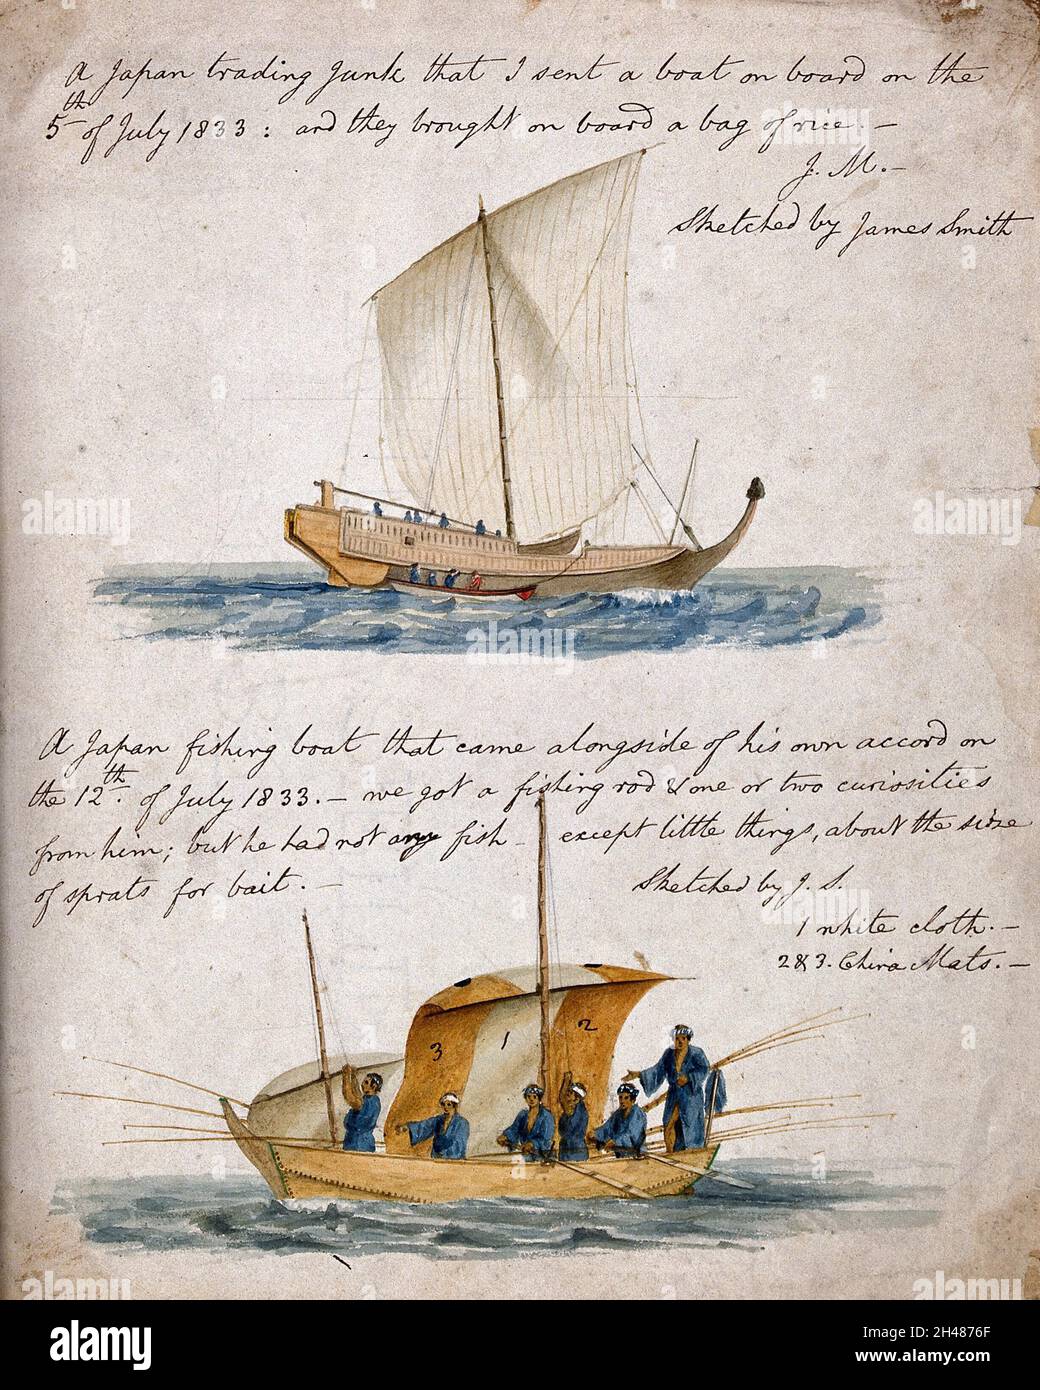 A Japan trading Junk that I sent a boat on board on the
5th of July 1833: and they brought on board a bag of rice. —
J. M. —
Sketched by James Smith
A Japan fishing boat that came alongside of his own accord on
the 12th. of July 1833. — we got a fishing rod & one or two curiosities
from him; but he had not any fish — except little things, about the size
of sprats for bait. —
Sketched by J. S.
1 white cloth. —
2 & 3. China Mats. —
3
1
2
alamy
alamy
alamy
alamy
alamy
alamy
alamy
alamy
alamy
alamy
Image ID: 2H4876F
www.alamy.com